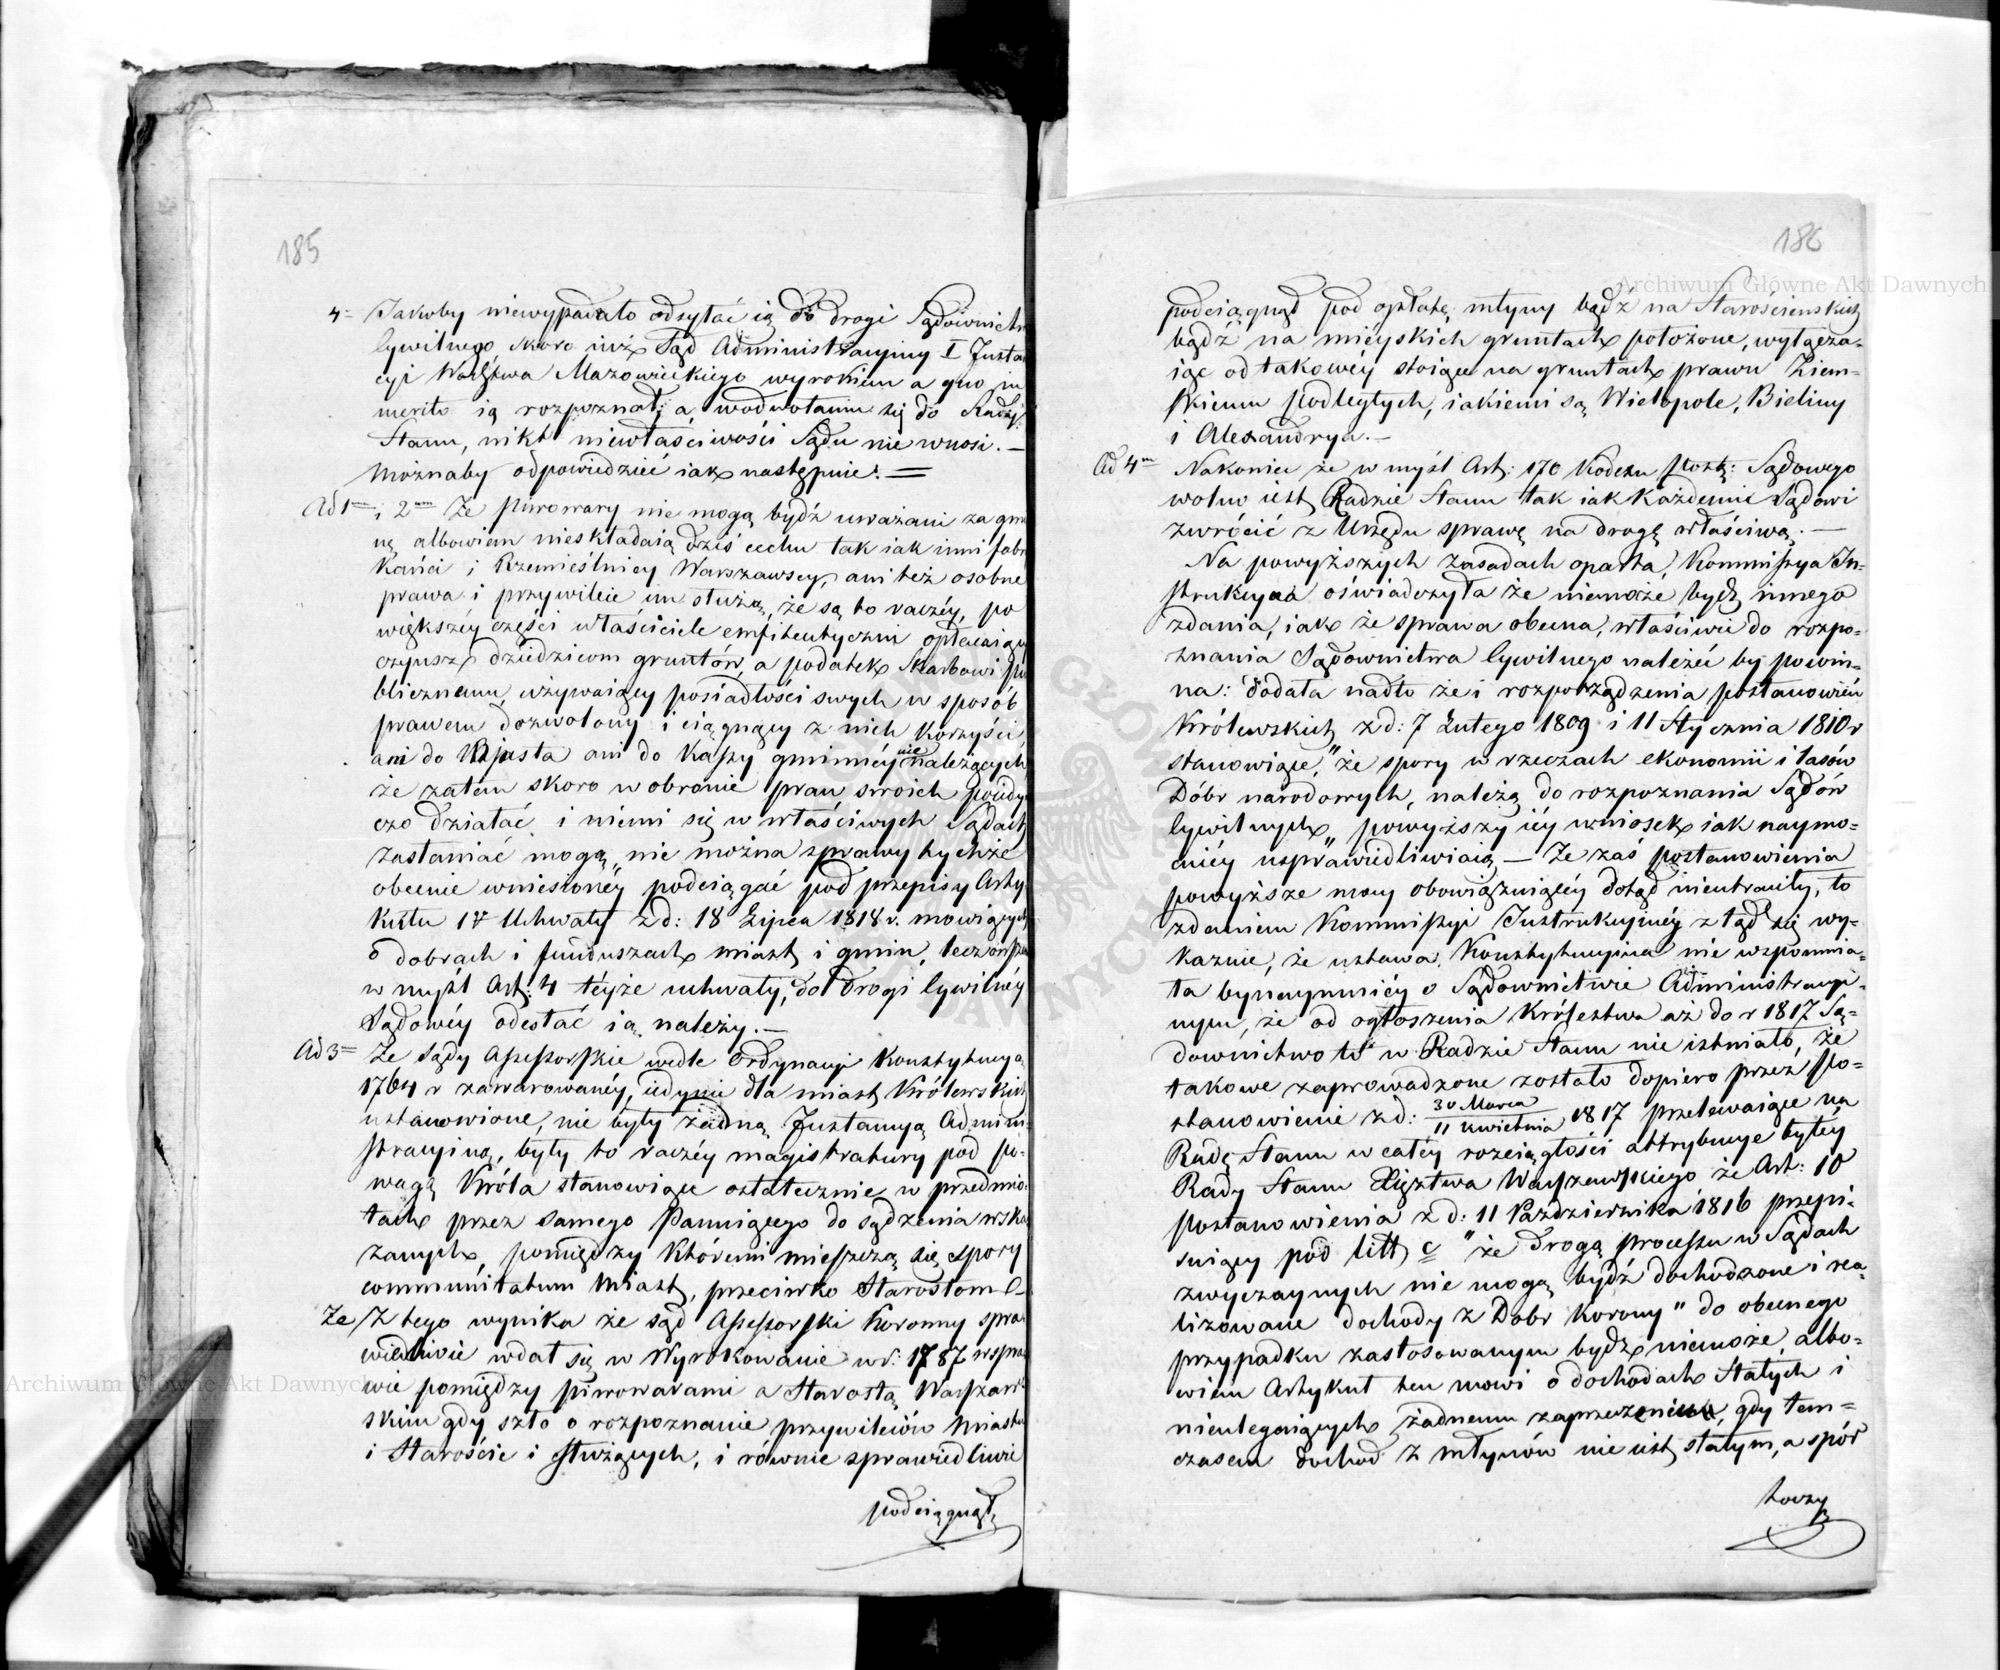 185
4= Jakoby niewypadało odsyłać ią do drogi Sądownictw
Cywilnego skoro iuż Sąd Administracyiny I Insta
cyi Wodztwa Mazowieckiego wyrokiem a quo in
merito ią rozpoznał, a w odwołaniu się do Rady
Stanu, nikt niewłaściwości Sądu nie wnosi. —
Możnaby odpowiedzieć iak następuie: =
Ad 1m i 2um Że piwowary nie mogą bydź uważani za gmi
nę albowiem nieskładaią dziś cechu tak iak inni fabry
kańci i Rzemieślnicy Warszawscy, ani też osobne
prawa i przywileie im służą, że są to raczéy, po
większéy części właściciele emfiteutyczni opłacaiący
czynsz dziedzicom gruntów, a podatek Skarbowi pu
blicznemu, używaiący posiadłości swych w sposób
prawem dozwolony i ciągnący z nich korzyści
ani do Miasta ani do Kassy gminnéy nie należących,
że zatem skoro w obronie praw swoich poiedyn
czo działać i niemi się w właściwych Sądach
zasłaniać mogą, nie można sprawy tychże
obecnie wniesionéy podciągać pod przepisy Arty
kułu 14 Uchwały z d: 18 Lipca 1818 r. mowiących
o dobrach i funduszach miast i gmin, lecz owszem
w myśl Art: 4 téyże uchwały, do Drogi Cywilnéy
Sądowéy odesłać ią należy. —
Ad 3= Że Sądy Assessorskie wedle Ordynacyi Konstytucyą
1764 r zawarowanéy, iedynie dla miast Królewskich
ustanowione, nie były żadną Instancyą Admini
stracyiną, były to raczéy magistratury pod po-
wagą Króla stanowiące ostatecznie w przedmio
tach przez samego Panuiącego do sądzenia wska
zanych, pomiędzy któremi mieszczą się spory
communitatum Miast, przeciwko Starostom
Że z tego wynika że sąd Assessorski Koronny spra
wiedliwie wdał się w Wyrokowanie w r: 1787 w spra
wie pomiędzy piwowarami a Starostą Warszaw
skim gdy szło o rozpoznanie przywileiów Miastu
i Staroście i służących, i równie sprawiedliwie
podciągnął,
186
podciągnął pod opłatę, młyny bądź na Starościenskich
bądź na mieyskich gruntach położone, wyłącza-
iąc od takowéy stoiące na gruntach prawu Ziem-
skiemu podległych, iakiemi są Wielopole, Bieliny
i Alexandrya. —
Ad 4m Nakoniec że w myśl Art: 170 Kodexu Post: Sądowego
wolno iest Radzie Stanu tak iak każdemu Sądowi
zwrócić z Urzędu sprawę na drogę właściwą. —
Na powyższych zasadach oparta, Kommissya In-
strukcyina oświadczyła że niemoże bydź innego
zdania, iak że sprawa obecna, właściwie do rozpo-
znania Sądownictwa Cywilnego należéć by powin-
na: dodała nadto że i rozporządzenia postanowień
Królewskich z d: 7 Lutego 1809 i 11 Stycznia 1810 r
stanowiące, "że spory w rzeczach ekonomii i lasów
Dóbr narodowych, należą do rozpoznania Sądów
Cywilnych„ powyższy iéy wniosek iak naymo-
cniéy usprawiedliwiaią — Że zaś postanowienia
powyższe mocy obowiązuiącéy dotąd nieutraciły, to
zdaniem Kommissyi Instrukcyinéy z tąd się wy-
kazuie, że ustawa Konstytucyina nie wspomnia-
ła bynaymniéy o Sądownictwie Administracyi-
nym, że od ogłoszenia Królestwa aż do r 1817 Są-
downictwo to w Radzie Stanu nie istniało, że
takowe zaprowadzone zostało dopiero przez po-
stanowienie z d: 30 Marca / 11 Kwietnia 1817 przelewaiące na
Radę Stanu w całéy rozciągłości attrybucye byłéy
Rady Stanu Xięztwa Warszawskiego że Art: 10
postanowienia z d: 11 Października 1816 przepi-
suiący pod litt c "że drogą processu w Sądach
zwyczaynych nie mogą bydź dochodzone i rea-
lizowane dochody z Dobr Korony" do obecnego
przypadku zastosowanym bydź niemoże, albo-
wiem Artykuł ten mowi o dochodach Stałych i
nieulegaiących żadnemu zaprzeczeniu, gdy tem-
czasem dochod z młynów nie iest stałym, a spór
toczy
Archiwum Główne Akt Dawnych
Archiwum Główne Akt Dawnych